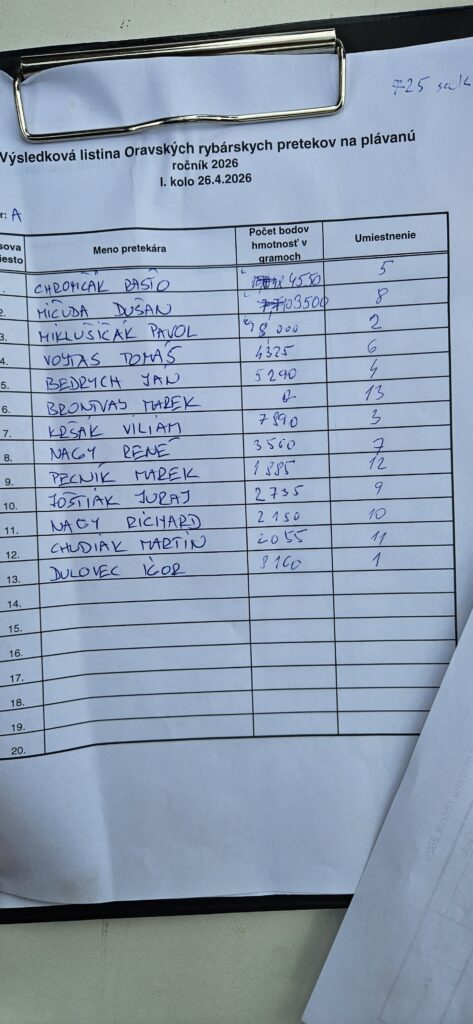 725
Výsledková listina Oravských rybárskych pretekov na plávanú
ročník 2026
I. kolo 26.4.2026
r: A
sova
iesto Meno pretekára Počet bodov
hmotnosť v
gramoch Umiestnenie
. CHROMČÁK RASŤO 4550 5
2. MIČUDA DUŠAN 3500 8
3. MIKLUŠIČÁK PAVOL 8 000 2
4. VOJTAS TOMÁŠ 4325 6
5. BEDRYCH JÁN 5290 4
6. BRONTVAS MAREK 0 13
7. KRŠÁK VILIAM 7890 3
8. NAGY RENÉ 3560 7
9. PECNÍK MAREK 1885 12
10. JOŠTIAK JURAJ 2735 9
11. NAGY RICHARD 2150 10
12. CHUDIAK MARTIN 2055 11
13. DULOVEC IGOR 8160 1
14.
15.
16.
17.
18.
19.
20.